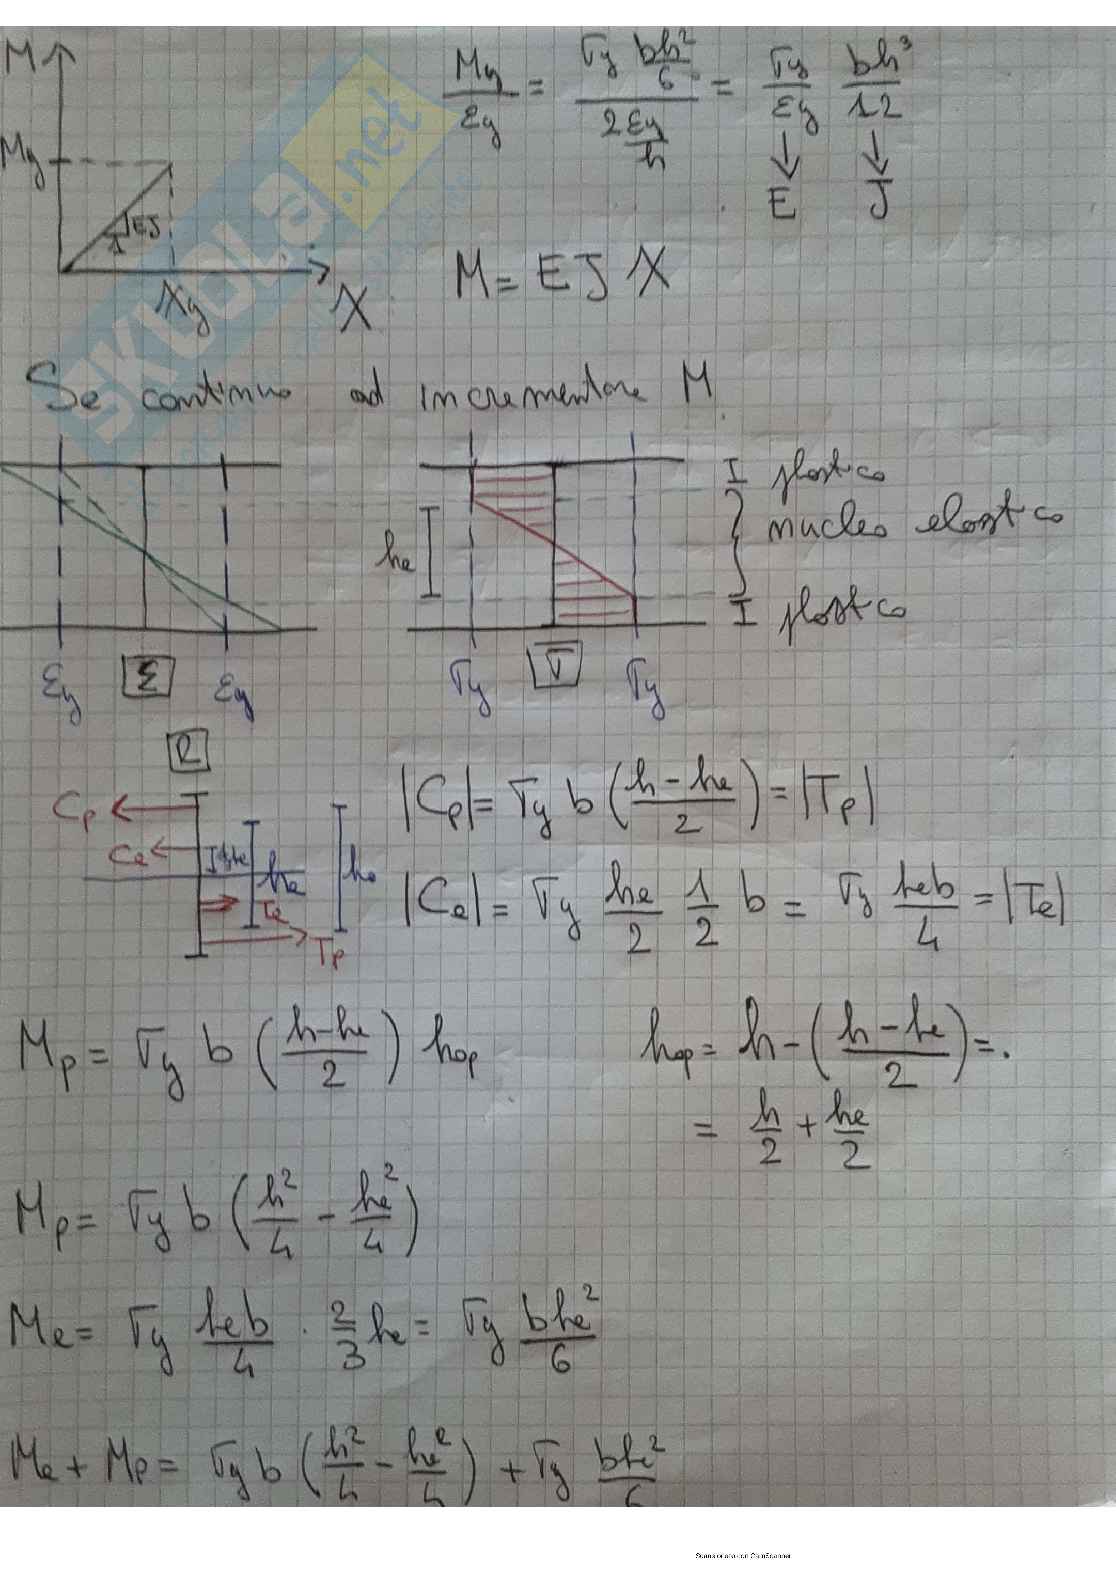 M
My
EJ
1
χy
χ
My/εy = (σy bh²/6)/(2εy/h) = σy/εy bh³/12
E J
M = E J χ
SKUOLA.net
Se continuo ad incrementare M
I plastico
nucleo elastico
he
I plastico
εy ε εy
σy σ σy
R
Cp
Ce
he
Te
Tp
|Cp| = σy b ((h-he)/2) = |Tp|
|Ce| = σy he/2 1/2 b = σy heb/4 = |Te|
Mp = σy b ((h-he)/2) hop
hop = h - ((h-he)/2) = .
= h/2 + he/2
Mp = σy b (h²/4 - he²/4)
Me = σy heb/4 · 2/3 he = σy bhe²/6
Me + Mp = σy b (h²/4 - he²/4) + σy bhe²/6